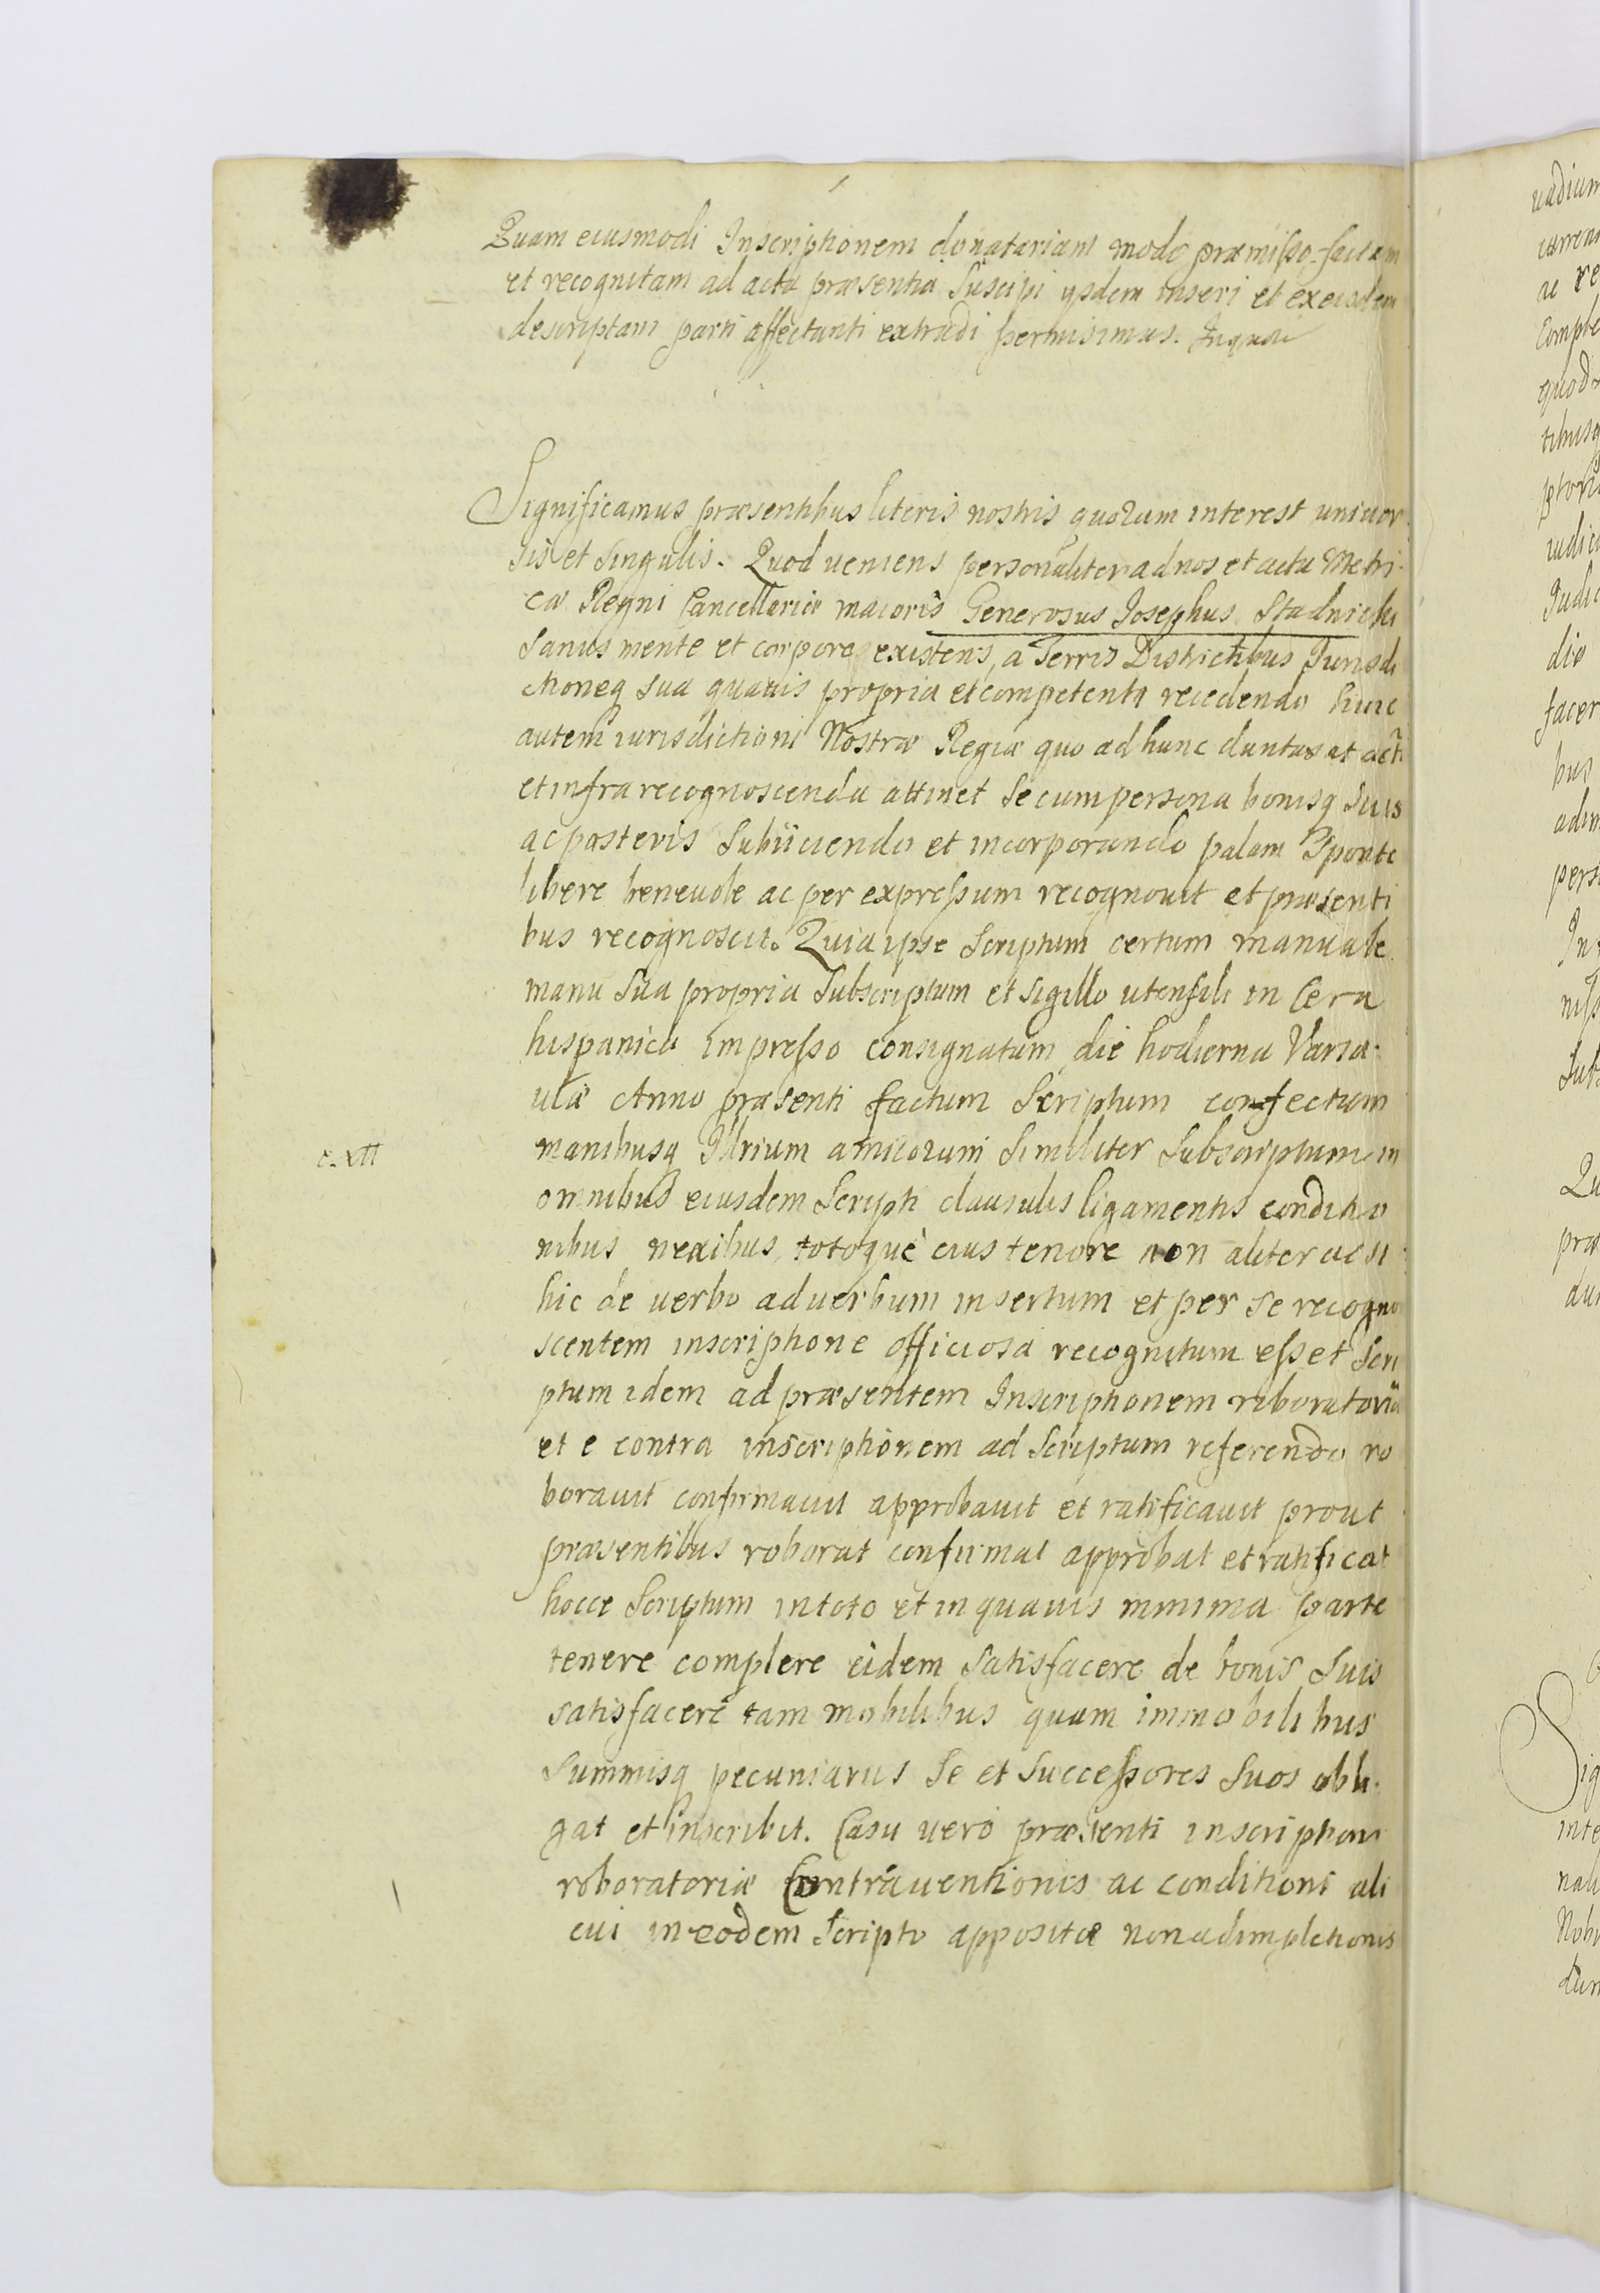 Quam eiusmodi Inscriptionem donatoriam modo præmisso factam
et recognitam ad acta præsentia Suscipi ijsdem inseri et ex eisdem
descriptam parti affectanti extradi permisimus. In quoru
Significamus præsentibus literis nostris quorum interest univer
sis et Singulis. Quod veniens personaliter ad nos et acta Metri-
cæ Regni Cancellariæ maioris Generosus Josephus Stadnicki
Sanus mente et corpore existens, a Terris Districtibus Jurisdi
ctioneq sua quavis propria et competenti recedendo huic
autem iurisdictioni Nostræ Regiæ quo ad hunc duntaxat actũ
et infra recognoscenda attinet Se cum persona bonisq Suis
ac posteris Subiiciendo et incorporando palam Sponte
libere benevole ac per expressum recognovit et præsenti
bus recognoscit. Quia ipse Scriptum certum manuale
manu Sua propria Subscriptum et sigillo utensili in Cera
hispanica impresso consignatum die hodierna Varsa-
viæ Anno præsenti factum Scriptum confectum
manibusq Illrium amicorum Similiter Subscriptum in
omnibus eiusdem Scripti clausulis ligamentis conditio
nibus nexibus totoquè eius tenore non aliter ac si
hic de verbo ad verbum insertum et per Se recogno
scentem inscriptione officiosa recognitum esset Scri
ptum idem ad præsentem Inscriptionem roboratoriã
et e contra inscriptionem ad Scriptum referendo ro
boravit confirmavit approbavit et ratificavit prout
præsentibus roborat confirmat approbat et ratificat
hocce Scriptum in toto et in quavis minima parte
tenere complere eidem Satisfacere de bonis Suis
satisfacere tam mobilibus quam immobilibus
Summisq pecuniariis Se et Successores Suos obli-
gat et inscribit. Casu vero præsenti inscriptioni
roboratoriæ Contraventionis ac conditioni ali
cui in eodem Scripto appositæ non adimpletionis
vadium
ac re
Comple
quod
die
facer
bus
adim
pers
Sub
Qu
præ
Sig
inte
nali
Nobi